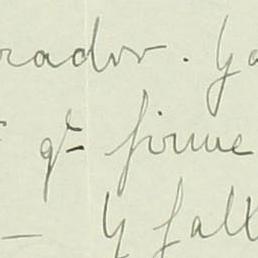 rador. Ya
q= firme
– y falt